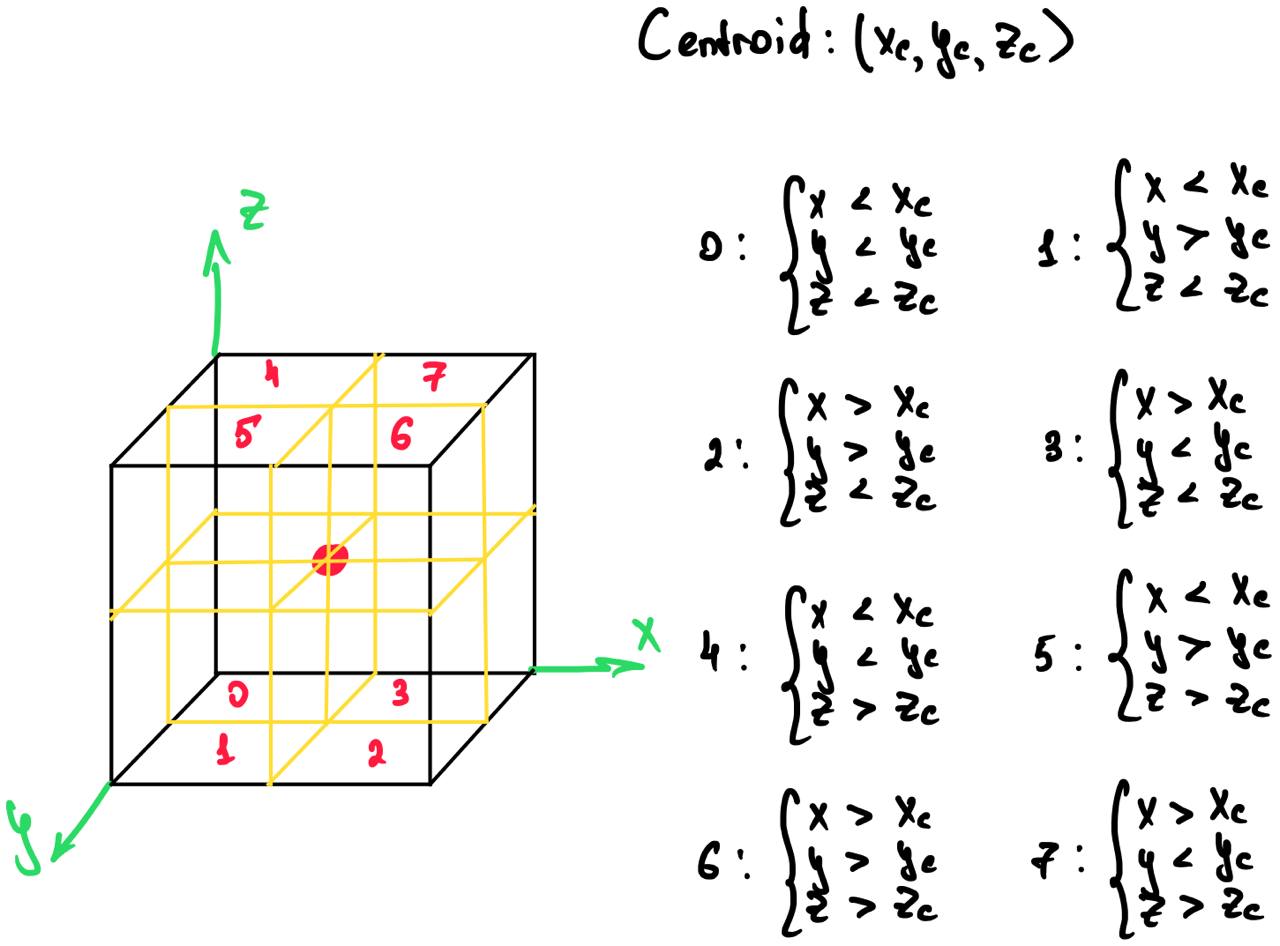 Centroid: (xc, yc, zc)
z
4 7
5 6
x
0 3
1 2
y
0: { x < xc
y < yc
z < zc
1: { x < xc
y > yc
z < zc
2: { x > xc
y > yc
z < zc
3: { x > xc
y < yc
z < zc
4: { x < xc
y < yc
z > zc
5: { x < xc
y > yc
z > zc
6: { x > xc
y > yc
z > zc
7: { x > xc
y < yc
z > zc